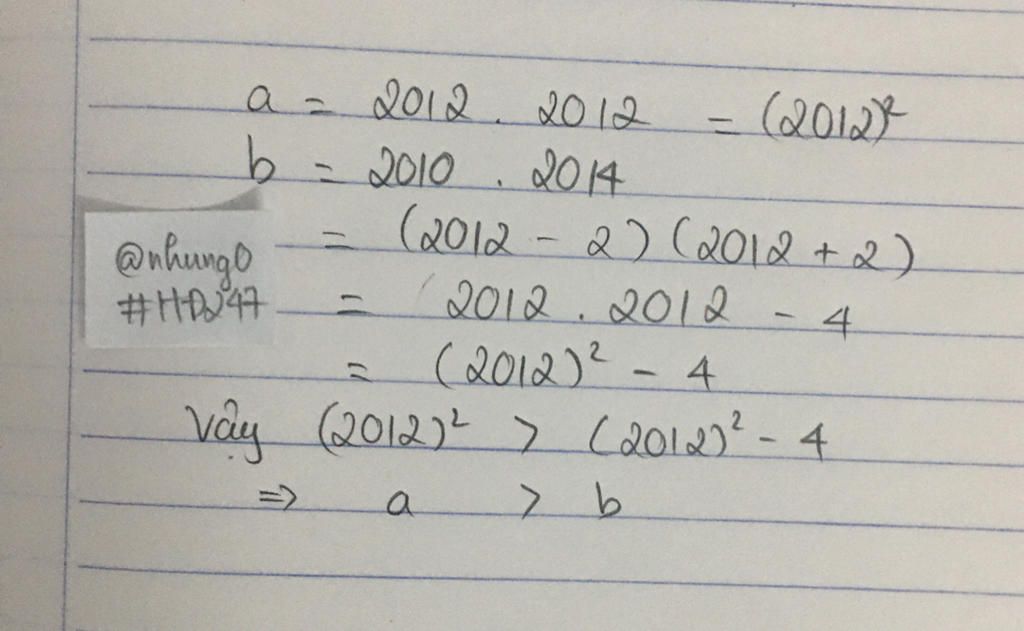 a = 2012 . 2012 = (2012)²
b = 2010 . 2014
= (2012 - 2) (2012 + 2)
= 2012 . 2012 - 4
= (2012)² - 4
Vậy (2012)² > (2012)² - 4
=> a > b
@nhung0
#HD247